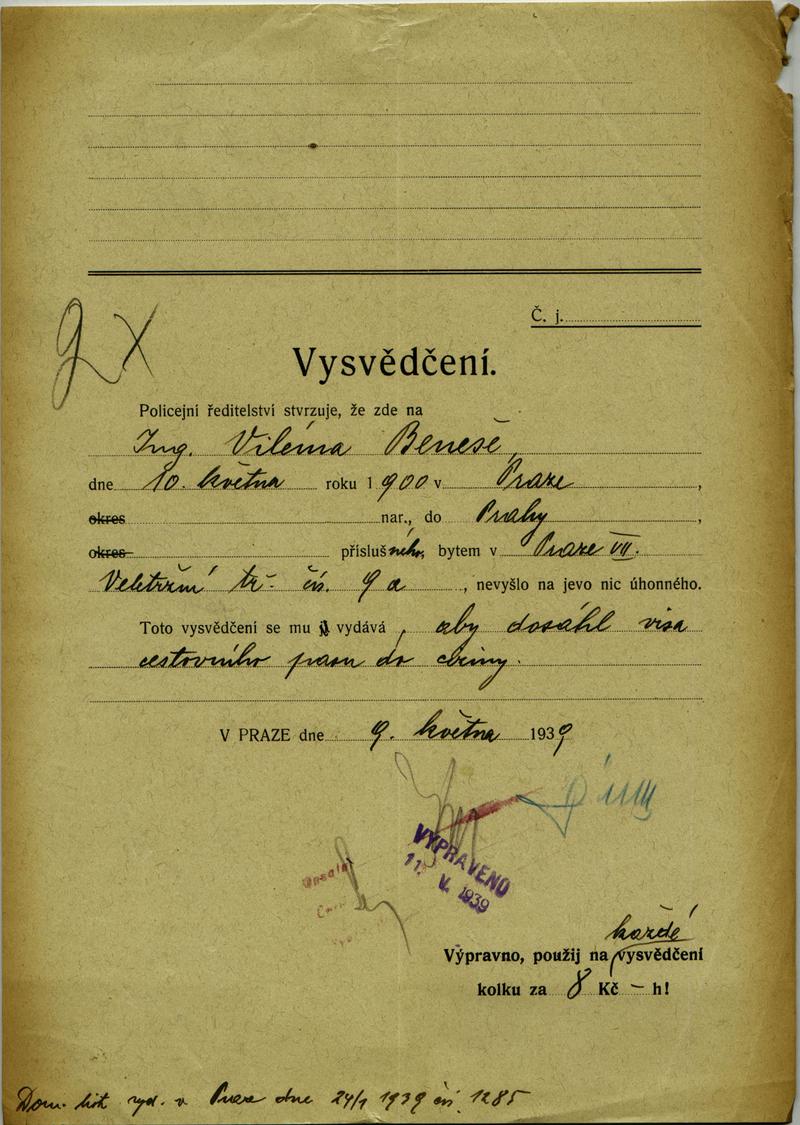 2 X
Č. j.
Vysvědčení.
Policejní ředitelství stvrzuje, že zde na
Ing. Viléma Beneše,
dne 10. května roku 1900 v Praze,
okres nar., do Prahy,
okres příslušného, bytem v Praze VII.
Veletržní tř. čís. 9 a, nevyšlo na jevo nic úhonného.
Toto vysvědčení se mu jí vydává, aby dosáhl visa
cestovního pasu do činy.
V PRAZE dne 9. května 1939
VYPRAVENO
11. V. 1939
každé
Výpravno, použij na vysvědčení
kolku za 8 Kč – h!
Dom. list vyd. v Praze dne 24/1 1939 čís. 1285